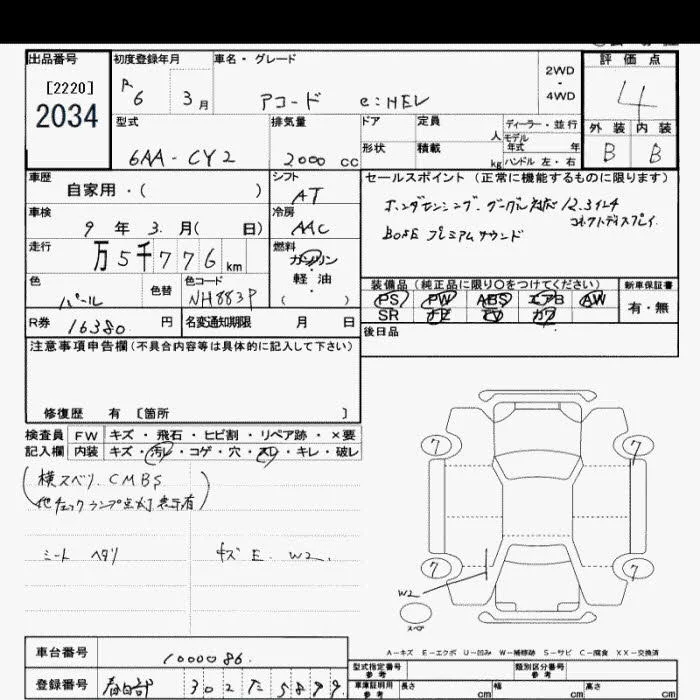 出品番号
[2220]
2034
初度登録年月
R 6 3 月
車名・グレード
アコード e:HEV
2WD
・
4WD
評価点
4
外装 内装
B B
型式
6AA-CY2
排気量
2000 cc
ドア 定員 人
形状 積載 kg
ディーラー・並行
モデル
年式 年
ハンドル 左・右
車歴
自家用・( )
シフト
AT
車検
9 年 3 月( 日)
冷房
AAC
走行
万 5 千 7 7 6 km
燃料
ガソリン
・
軽油
( )
色
パール
色替
色コード
NH883P
R券 16380 円
名変通知期限 月 日
セールスポイント(正常に機能するものに限ります)
ホンダセンシング グーグル対応 12.3インチ
コネクトディスプレイ
BOSE プレミアムサウンド
装備品(純正品に限り〇をつけてください)
PS PW ABS エアB AW
SR ナビ TV カワ
新車保証書
有・無
後日品
注意事項申告欄(不具合内容等は具体的に記入して下さい)
修復歴 有 〔箇所 〕
検査員
記入欄
FW キズ・飛石・ヒビ割・リペア跡・×要
内装 キズ・汚レ・コゲ・穴・スレ・キレ・破レ
(横スベリ. CMBS
他チェックランプ点灯表示有)
シート ヘタリ
キズ E. W2.
7 7
7 7
W2
スペア
A-キズ E-エクボ U-凹み W-補修跡 S-サビ C-腐食 XX-交換済
車台番号
1000086.
登録番号
春日部 302 5899
型式指定番号
参考
類別区分番号
参考
車庫証明用
参考
長さ cm 幅 cm 高さ cm